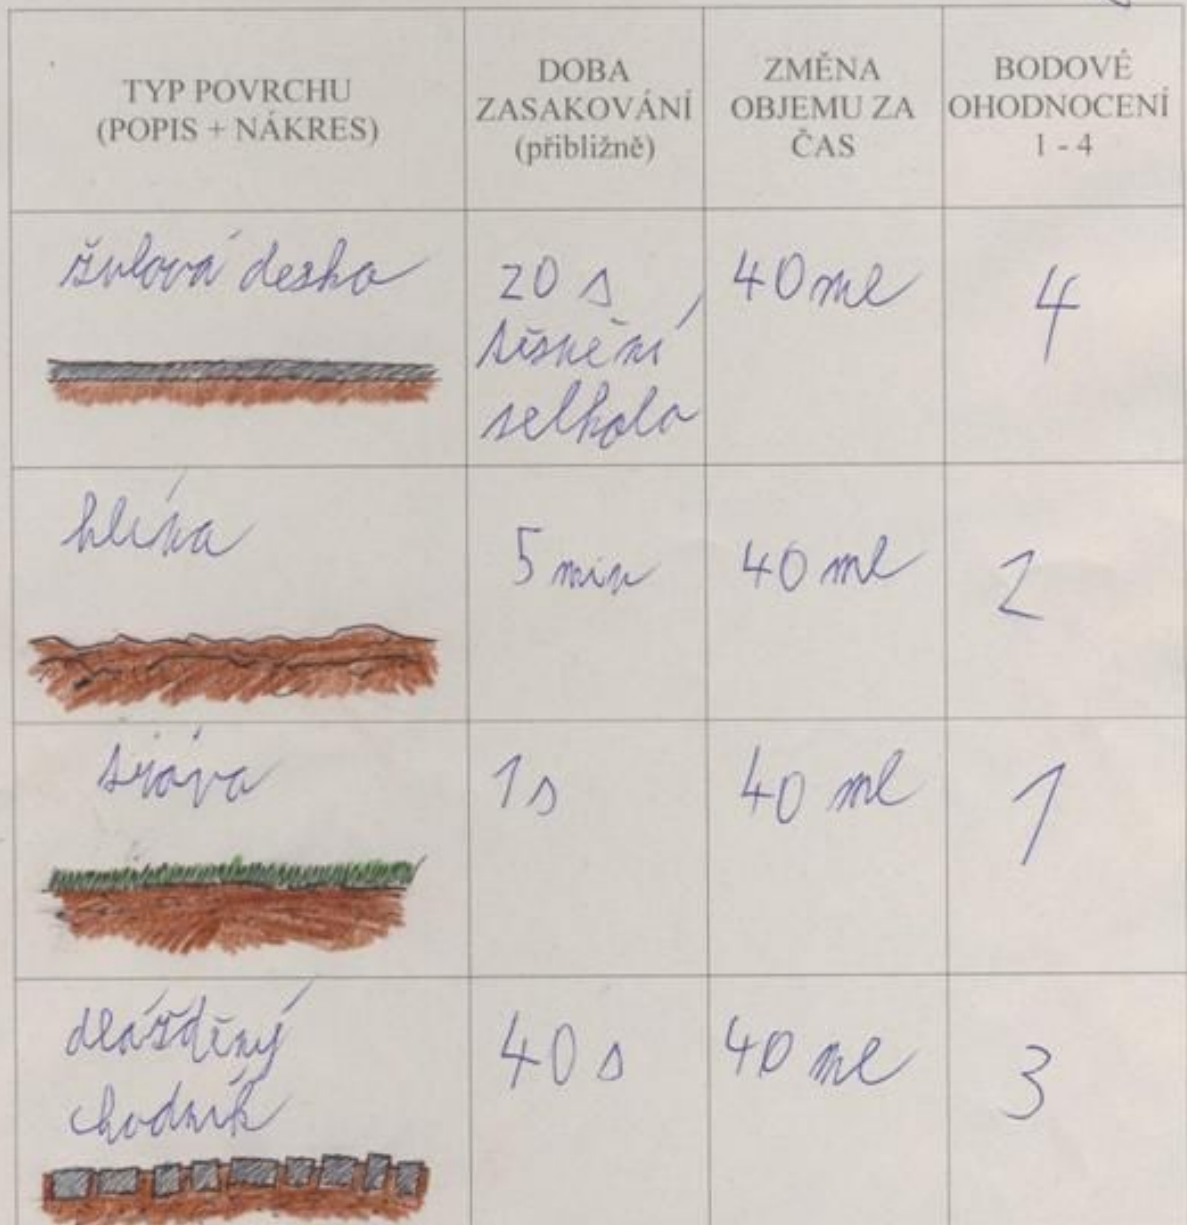 TYP POVRCHU
(POPIS + NÁKRES)
DOBA
ZASAKOVÁNÍ
(přibližně)
ZMĚNA
OBJEMU ZA
ČAS
BODOVÉ
OHODNOCENÍ
1 - 4
žulová deska
20 s
těsnění
selhalo
40 ml
4
hlína
5 min
40 ml
2
tráva
1 s
40 ml
1
dlážděný
chodník
40 s
40 ml
3